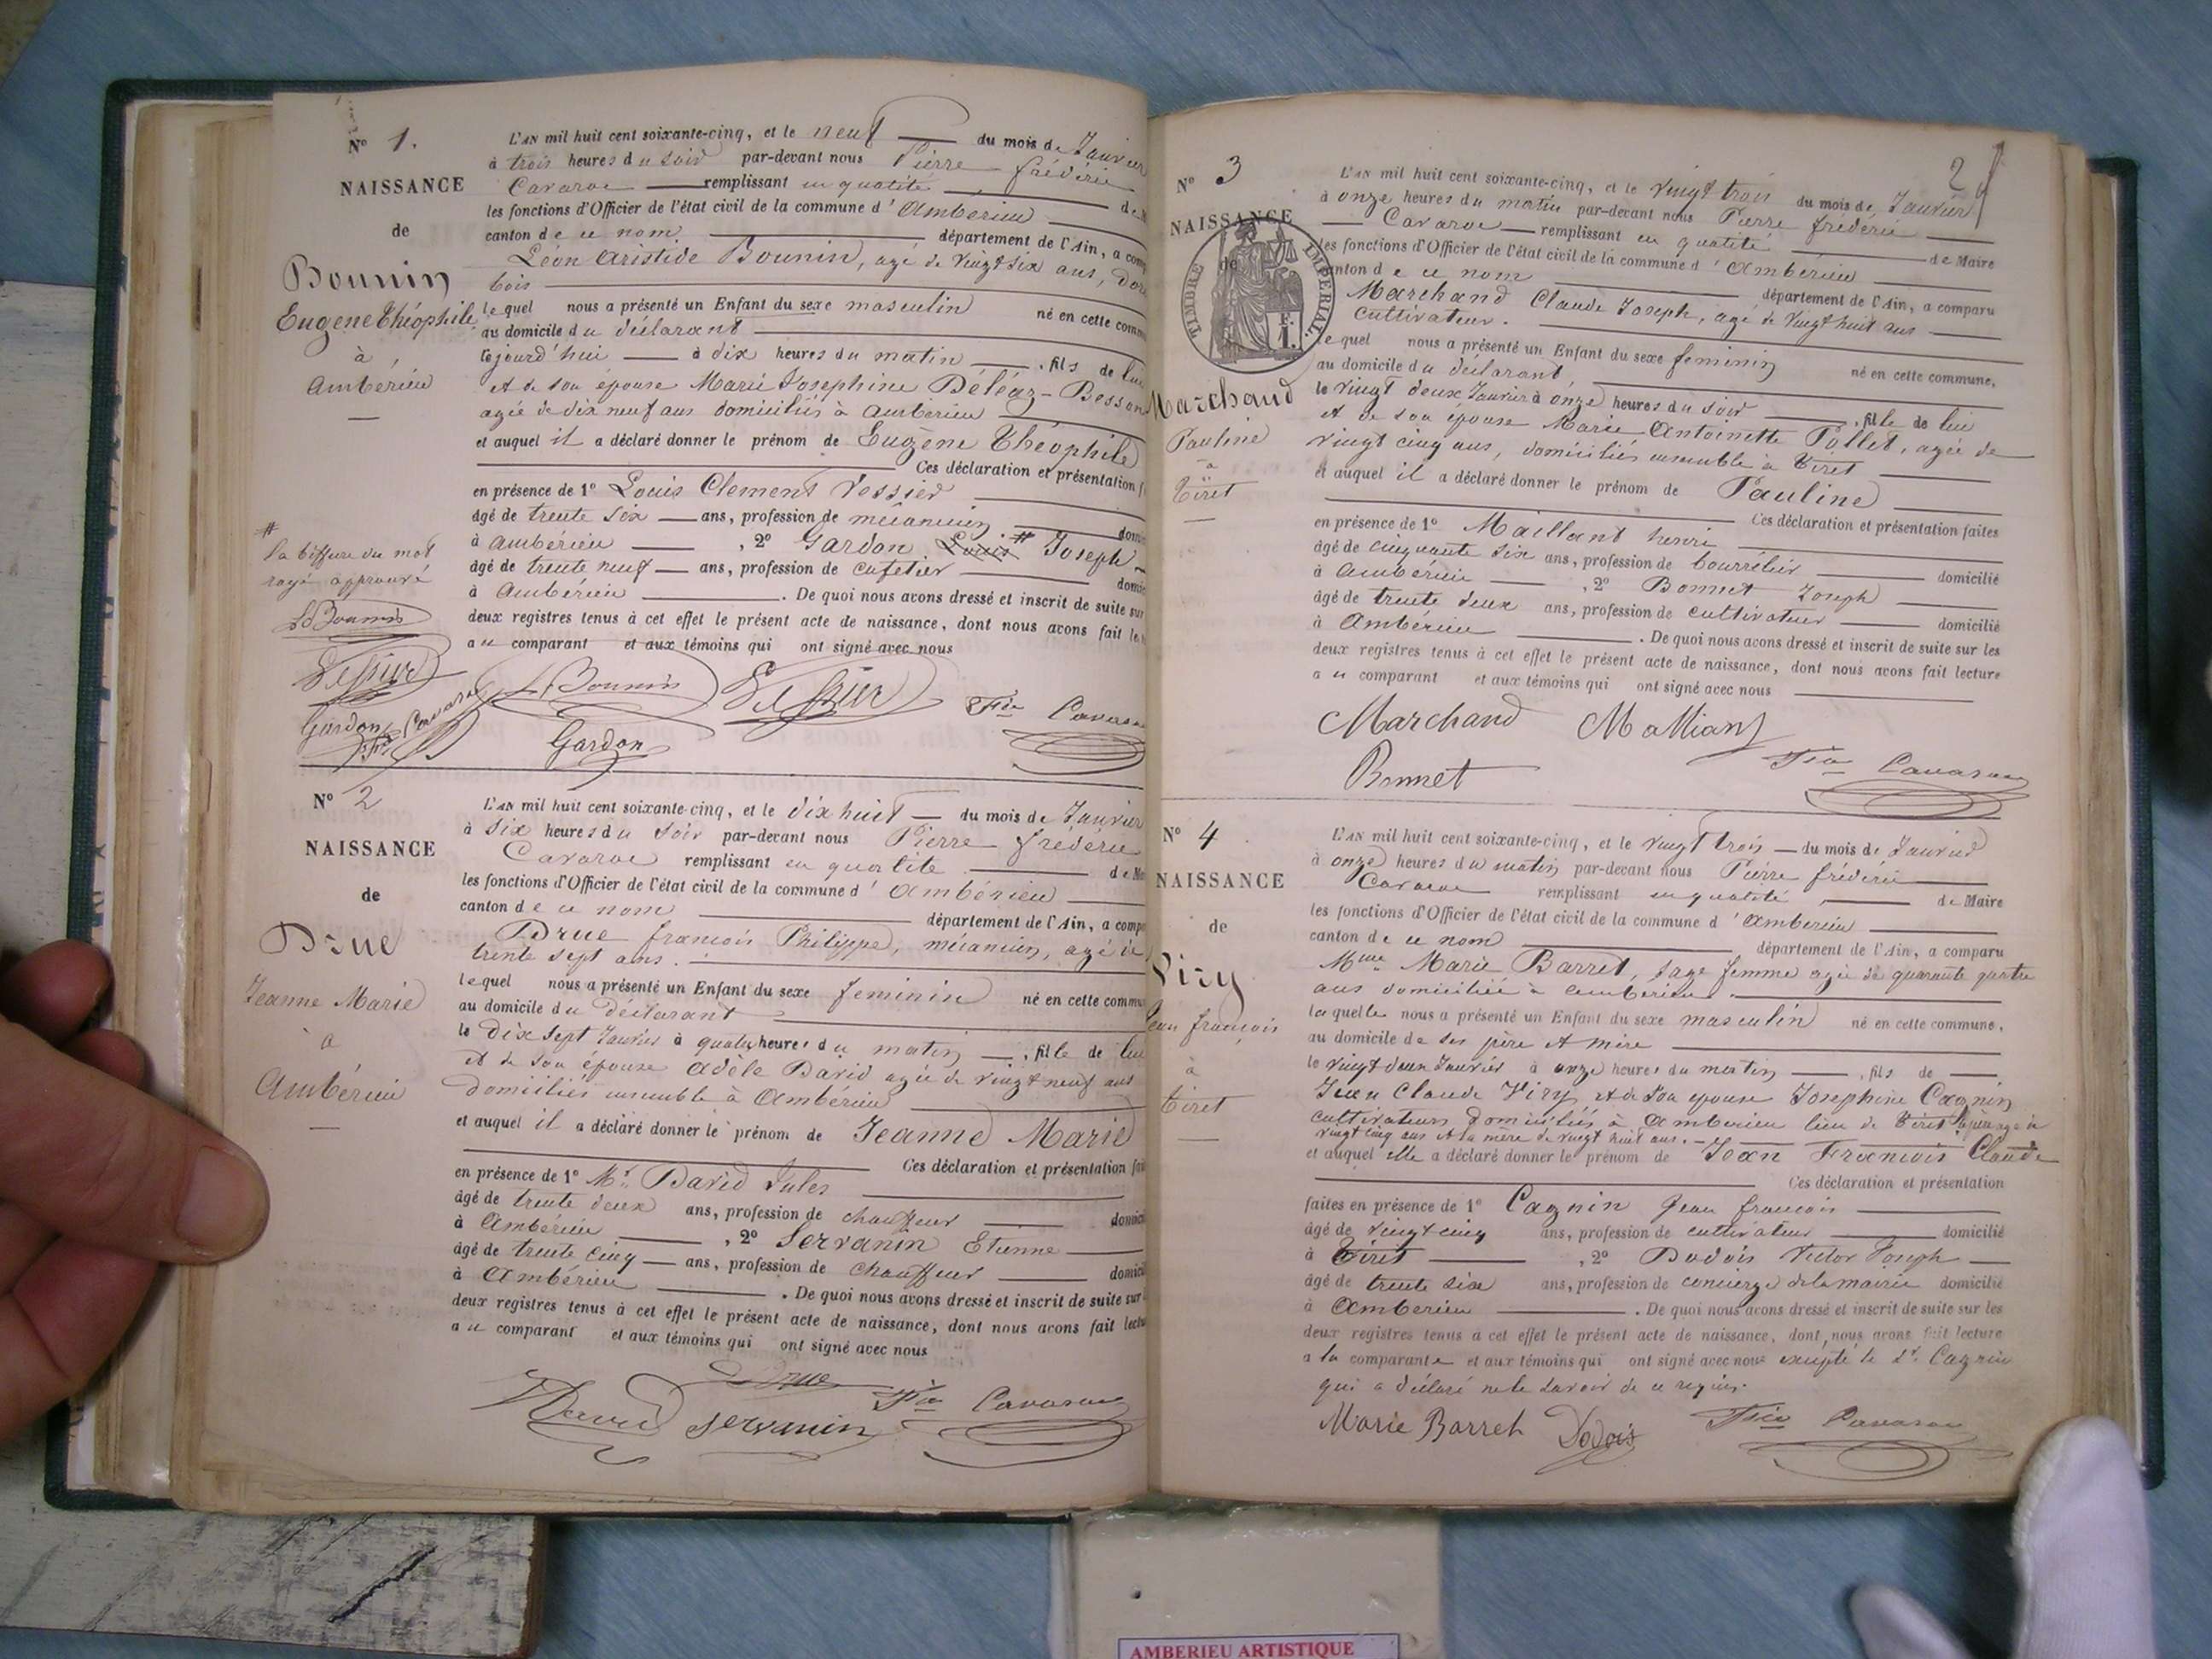 Nº 1.
NAISSANCE
de
Bounin
Eugene Théophile
à
Ambérieu
#
la biffure du mot
rayé approuvé
LBounin
Tessier
Gardon
L'AN mil huit cent soixante-cinq, et le neuf du mois de Janvier
à trois heures du soir par-devant nous Pierre fréderic
Cavaroc remplissant en qualité
les fonctions d'Officier de l'état civil de la commune d'Ambérieu
canton de ce nom département de l'Ain, a comp
Léon Aristide Bounin, agé de vingt six ans,
bois
lequel nous a présenté un Enfant du sexe masculin né en cette comm
au domicile du déclarant
cejourd'hui à dix heures du matin , fils de lui
et de son épouse Marie Josephine Déléaz-Besson
agée de dix neuf ans domiciliés à Ambérieu
et auquel il a déclaré donner le prénom de Eugène Théophile
Ces déclaration et présentation
en présence de 1º Louis Clement Tessier
âgé de trente six ans, profession de mécanicien
à Ambérieu , 2º Gardon Louis # Joseph
âgé de trente neuf ans, profession de cafetier
à Ambérieu . De quoi nous avons dressé et inscrit de suite sur
deux registres tenus à cet effet le présent acte de naissance, dont nous avons fait
au comparant et aux témoins qui ont signé avec nous
LBounin Tessier
Gardon
Nº 2
NAISSANCE
de
Drue
Jeanne Marie
à
Ambérieu
L'AN mil huit cent soixante-cinq, et le dix huit du mois de Janvier
à six heures du soir par-devant nous Pierre fréderic
Cavaroc remplissant en qualité
les fonctions d'Officier de l'état civil de la commune d'Ambérieu
canton de ce nom département de l'Ain, a comp
Drue francois Philippe, mécanicien, agé de
trente sept ans.
lequel nous a présenté un Enfant du sexe feminin né en cette commu
au domicile du déclarant
le dix sept Janvier à quatre heures du matin , fille de lui
et de son épouse Adèle David agée de vingt neuf ans
domiciliés ensemble à Ambérieu
et auquel il a déclaré donner le prénom de Jeanne Marie
Ces déclaration et présentation
en présence de 1º Mr. David Jules
âgé de trente deux ans, profession de chauffeur
à Ambérieu , 2º Servanin Etienne
âgé de trente cinq ans, profession de chauffeur
à Ambérieu . De quoi nous avons dressé et inscrit de suite sur
deux registres tenus à cet effet le présent acte de naissance, dont nous avons fait
au comparant et aux témoins qui ont signé avec nous
Drue
David Servanin
2
Nº 3
NAISSANCE
de
TIMBRE IMPERIAL
F.
1.
Marchand
Pauline
à
Tiret
L'AN mil huit cent soixante-cinq, et le vingt trois du mois de Janvier
à onze heures du matin par-devant nous Pierre fréderic
Cavaroc remplissant en qualité de Maire
les fonctions d'Officier de l'état civil de la commune d'Ambérieu
canton de ce nom département de l'Ain, a comparu
Marchand Claude Joseph, agé de vingt huit ans
cultivateur.
lequel nous a présenté un Enfant du sexe feminin né en cette commune,
au domicile du déclarant
le vingt deux Janvier à onze heures du soir , fille de lui
et de son épouse Marie Antoinette Pollet, agée de
vingt cinq ans, domiciliés ensemble à Tiret
et auquel il a déclaré donner le prénom de Pauline
Ces déclaration et présentation faites
en présence de 1º Maillant henri
âgé de cinquante six ans, profession de bourrélier domicilié
à Ambérieu , 2º Bonnet Joseph
âgé de trente deux ans, profession de cultivateur domicilié
à Ambérieu . De quoi nous avons dressé et inscrit de suite sur les
deux registres tenus à cet effet le présent acte de naissance, dont nous avons fait lecture
au comparant et aux témoins qui ont signé avec nous
Marchand
Bonnet
Nº 4
NAISSANCE
de
Viry
Jean françois
à
Tiret
L'AN mil huit cent soixante-cinq, et le vingt trois du mois de Janvier
à onze heures du matin par-devant nous Pierre fréderic
Cavaroc remplissant en qualité de Maire
les fonctions d'Officier de l'état civil de la commune d'Ambérieu
canton de ce nom département de l'Ain, a comparu
Mme Marie Barret, sage femme agée de quarante quatre
ans domiciliée à Ambérieu.
laquelle nous a présenté un Enfant du sexe masculin né en cette commune,
au domicile de ses père et mère
le vingt deux Janvier à onze heures du matin , fils de
Jean Claude Viry et de son épouse Josephine Cagnin
cultivateurs domiciliés à Ambérieu lieu de Tiret le père agé de
vingt cinq ans et la mère de vingt huit ans.
et auquel elle a déclaré donner le prénom de Jean François Claude
Ces déclaration et présentation
faites en présence de 1º Cagnin Jean francois
âgé de vingt cinq ans, profession de cultivateur domicilié
à Tiret , 2º Dodois Victor Joseph
âgé de trente six ans, profession de concierge de la mairie domicilié
à Ambérieu . De quoi nous avons dressé et inscrit de suite sur les
deux registres tenus à cet effet le présent acte de naissance, dont nous avons fait lecture
a la comparante et aux témoins qui ont signé avec nous excepté le Sr. Cagnin
qui a déclaré ne le savoir de ce requis.
Marie Barret Dodois
AMBERIEU ARTISTIQUE